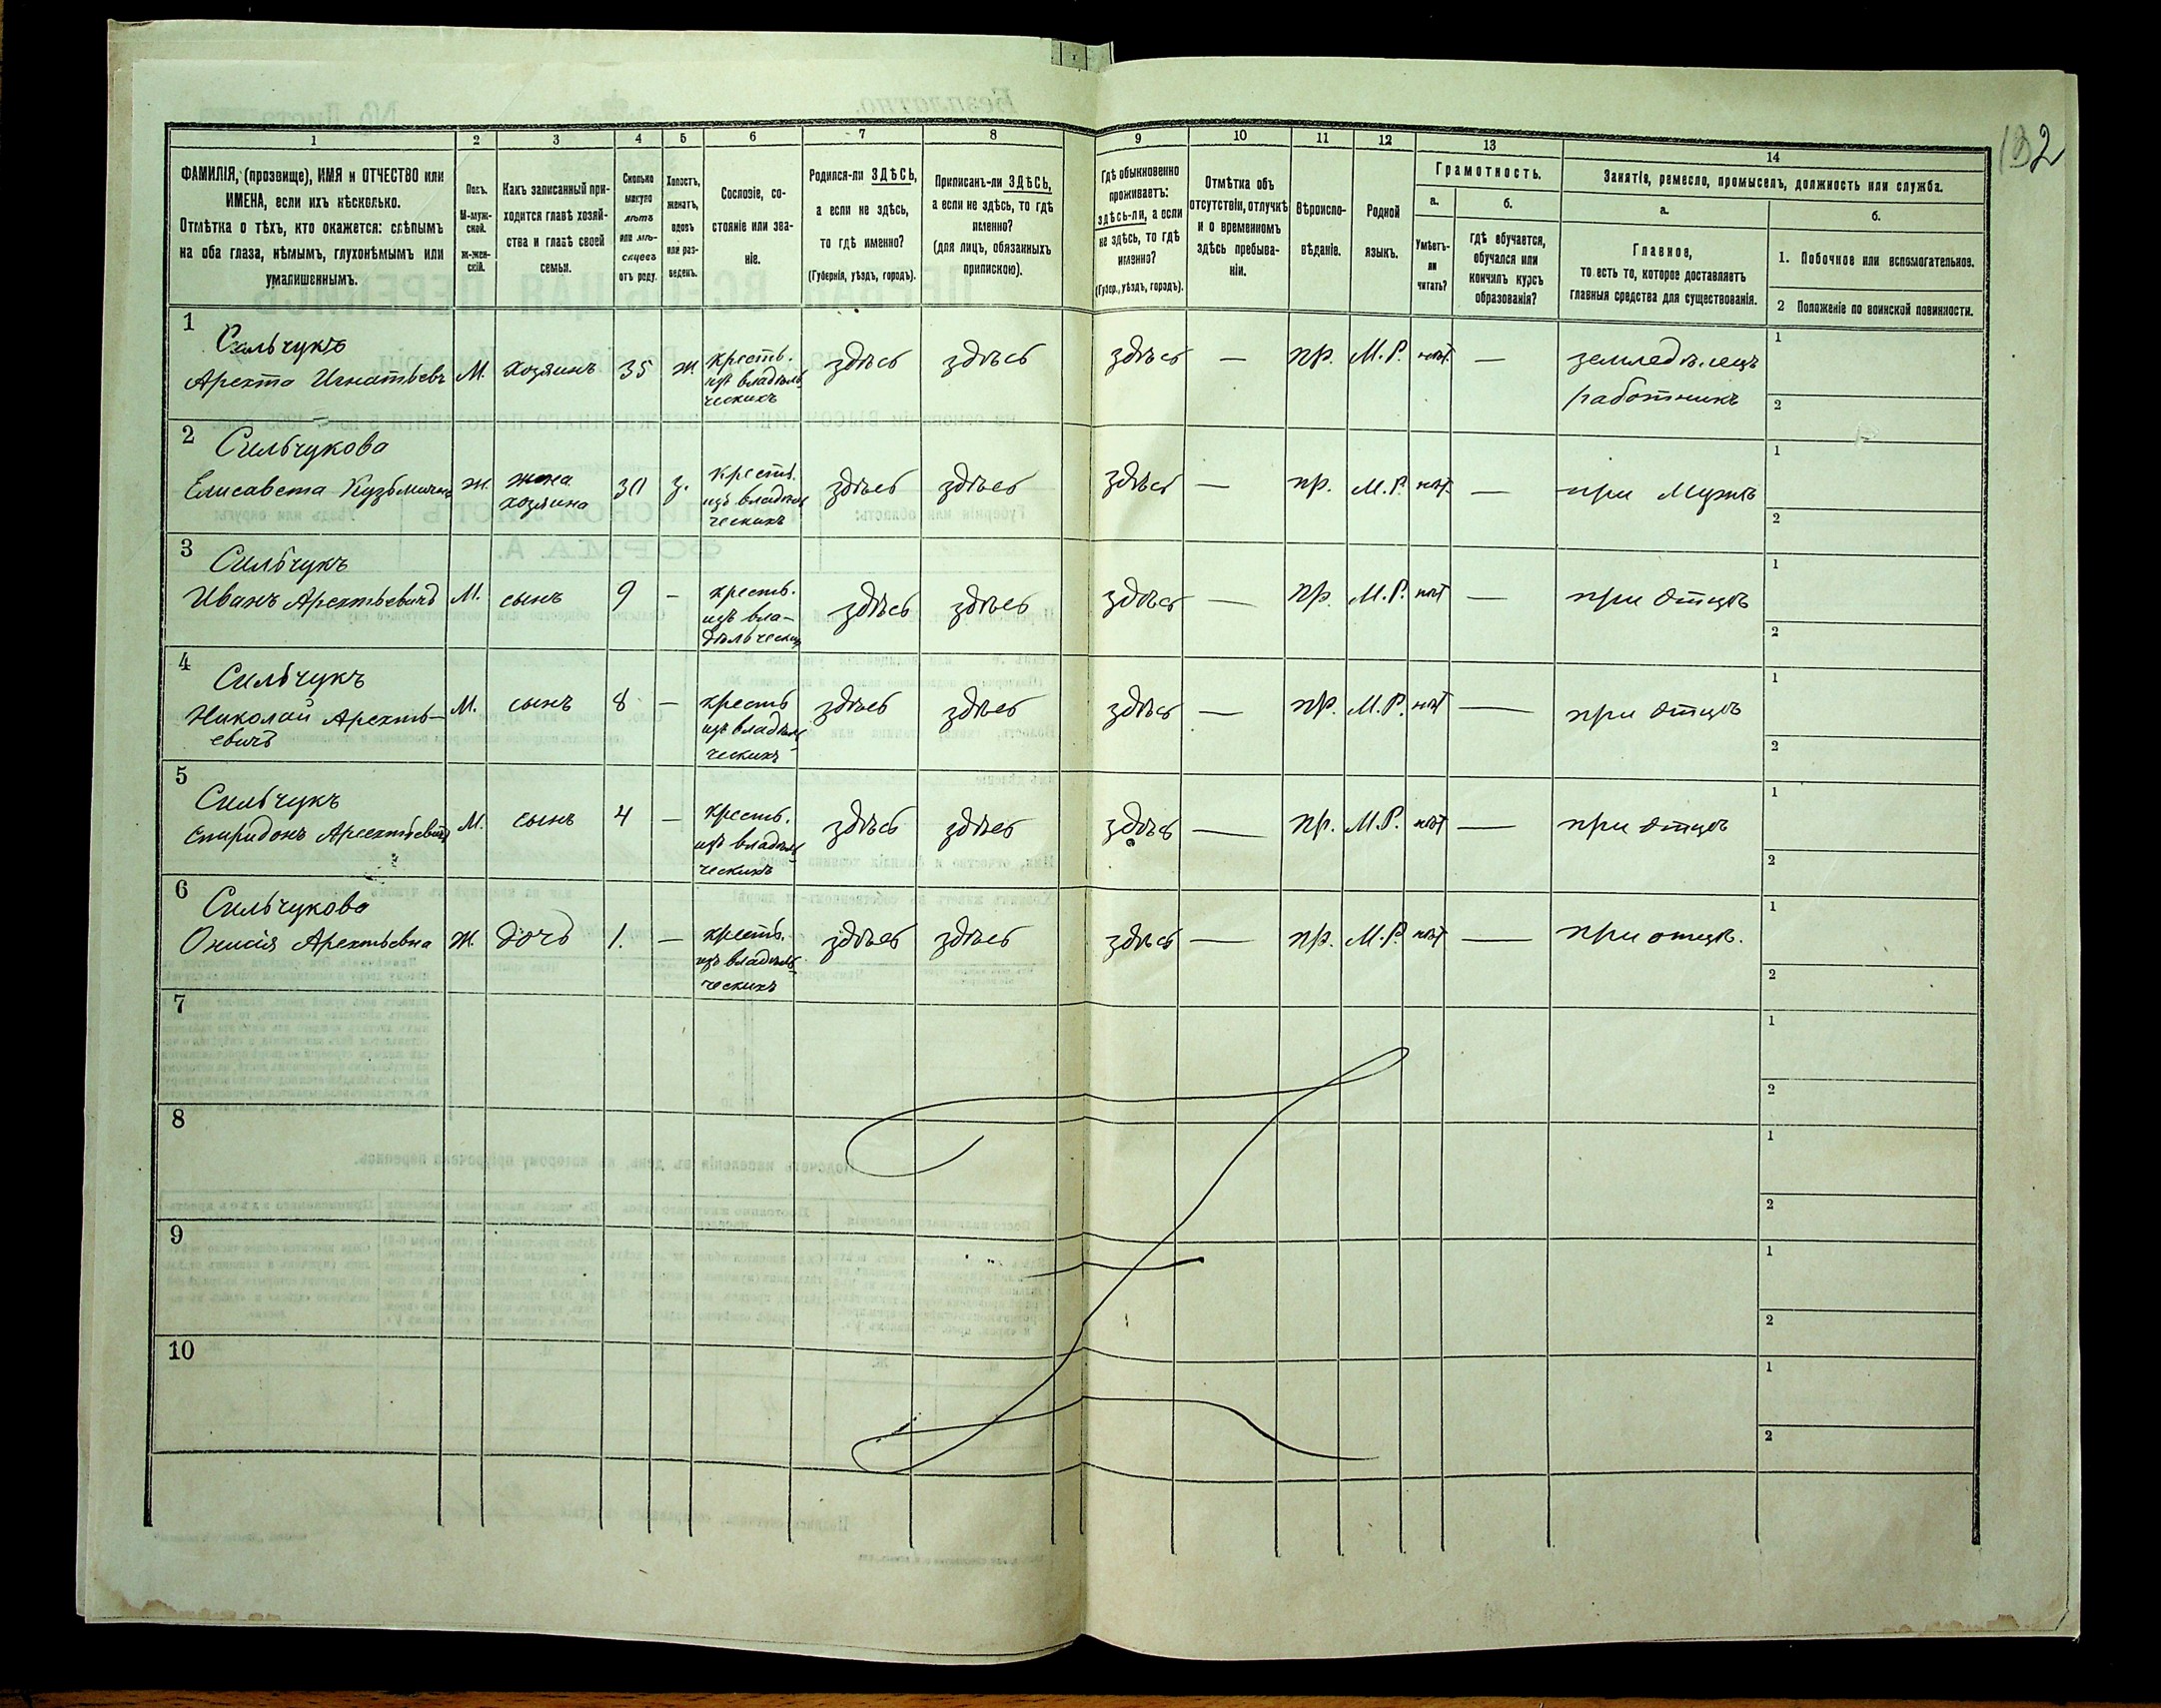 132
1 2 3 4 5 6 7 8 9 10 11 12 13 14
ФАМИЛІЯ, (прозвище), ИМЯ и ОТЧЕСТВО или
ИМЕНА, если ихъ нѣсколько.
Отмѣтка о тѣхъ, кто окажется: слѣпымъ
на оба глаза, нѣмымъ, глухонѣмымъ или
умалишеннымъ.
Полъ.
М-муж-
ской.
ж-жен-
скій.
Какъ записанный при-
ходится главѣ хозяй-
ства и главѣ своей
семьи.
Сколько
минуло
лѣтъ
или мѣ-
сяцевъ
отъ роду.
Холостъ,
женатъ,
вдовъ
или раз-
веденъ.
Сословіе, со-
стояніе или зва-
ніе.
Родился-ли ЗДѢСЬ,
а если не здѣсь,
то гдѣ именно?
(Губернія, уѣздъ, городъ).
Приписанъ-ли ЗДѢСЬ,
а если не здѣсь, то гдѣ
именно?
(для лицъ, обязанныхъ
припискою).
Гдѣ обыкновенно
проживаетъ:
здѣсь-ли, а если
не здѣсь, то гдѣ
именно?
(Губер., уѣздъ, городъ).
Отмѣтка объ
отсутствіи, отлучкѣ
и о временномъ
здѣсь пребыва-
ніи.
Вѣроиспо-
вѣданіе.
Родной
языкъ.
Грамотность.
а.
Умѣетъ-
ли
читать?
б.
гдѣ обучается,
обучался или
кончилъ курсъ
образованія?
Занятія, ремесло, промыселъ, должность или служба.
а.
Главное,
то есть то, которое доставляетъ
главныя средства для существованія.
б.
1. Побочное или вспомогательное.
2 Положеніе по воинской повинности.
1
Сильчукъ
Арехта Игнатьевъ М. хозяинъ 35 ж. крестъ. здѣсь здѣсь здѣсь — пр. М.Р. нѣт — земледѣлецъ
изъ владѣль
ческихъ
работникъ
1
2
2
Сильчукова
Елисавета Кузьмична ж. жена 30 з. крестъ. здѣсь здѣсь здѣсь — пр. М.Р. нѣт. — при мужѣ
хозяина
изъ владѣль
ческихъ
1
2
3
Сильчукъ
Иванъ Арехтьевичъ М. сынъ 9 — крестъ. здѣсь здѣсь здѣсь — пр. М.Р. нѣт — при отцѣ
изъ вла-
дѣльческихъ
1
2
4
Сильчукъ
Николай Арехть- М. сынъ 8 — крестъ здѣсь здѣсь здѣсь — пр. М.Р. нѣт — при отцѣ
евичъ
изъ владѣль
ческихъ
1
2
5
Сильчукъ
Спиридонъ Арехтьевичъ М. сынъ 4 — крестъ. здѣсь здѣсь здѣсь — пр. М.Р. нѣт — при отцѣ
изъ владѣль
ческихъ
1
2
6
Сильчукова
Онисія Арехтьевна Ж. дочь 1. — крестъ. здѣсь здѣсь здѣсь — пр. М.Р. нѣт — при отцѣ.
изъ владѣль
ческихъ
1
2
7
1
2
8
1
2
9
1
2
10
1
2